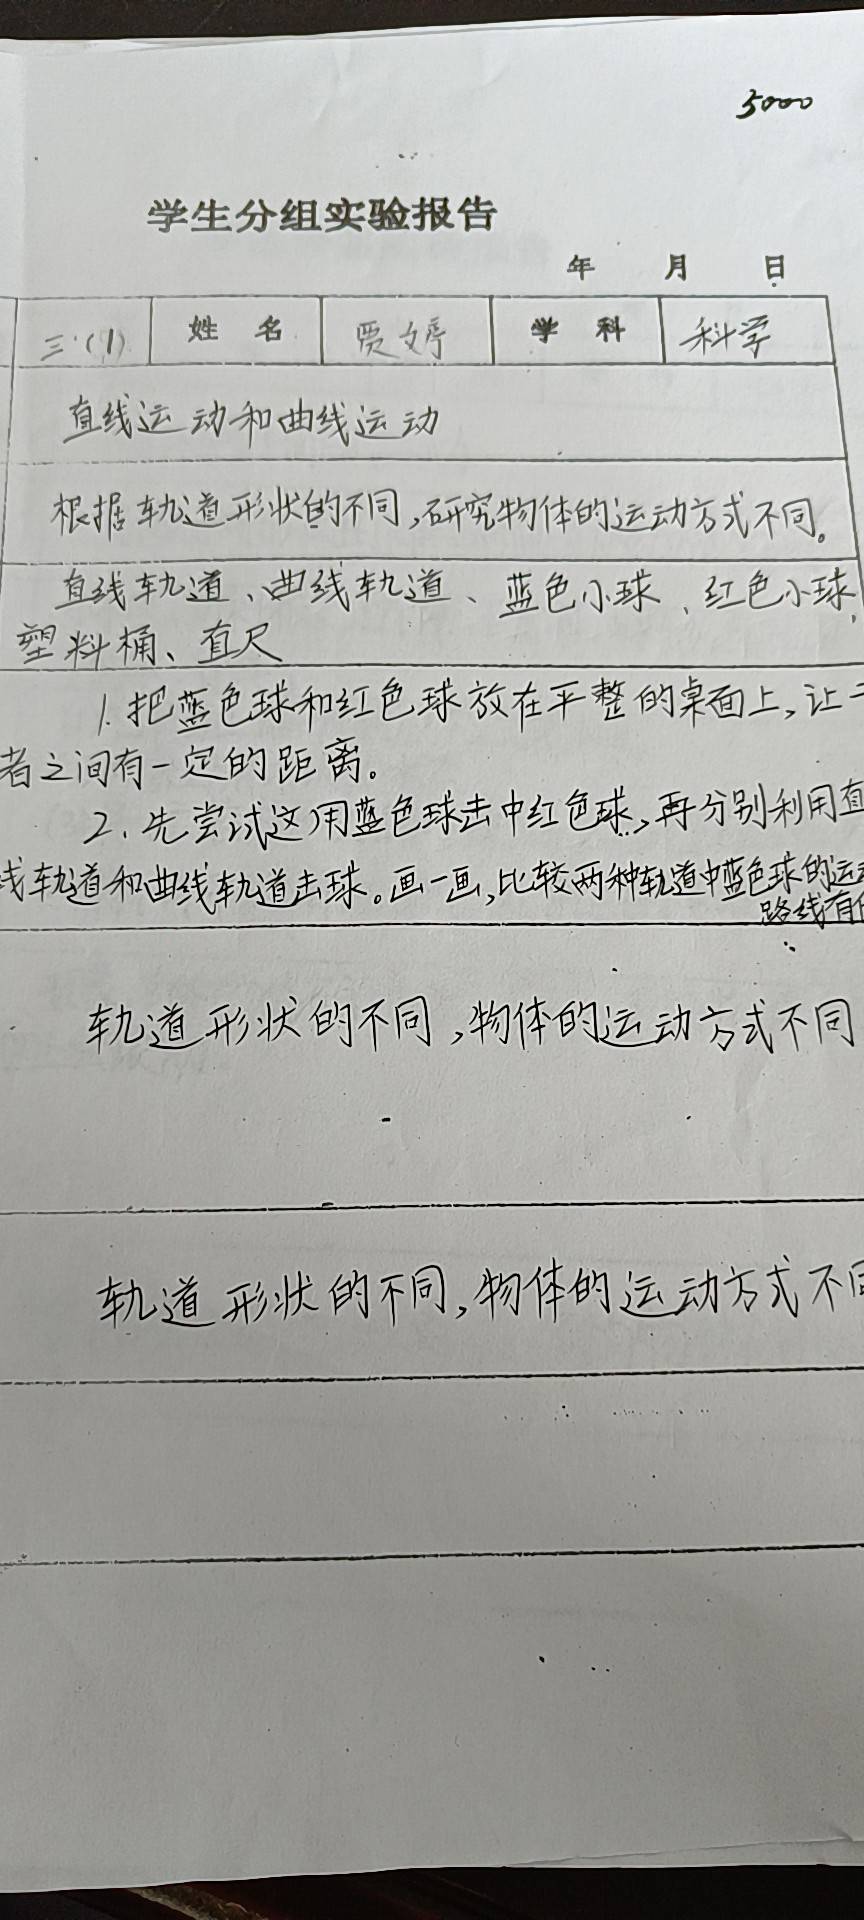 5000
学生分组实验报告
年 月 日
三(1) 姓 名 贾婷 学 科 科学
直线运动和曲线运动
根据轨道形状的不同,研究物体的运动方式不同。
直线轨道、曲线轨道、蓝色小球、红色小球、
塑料桶、直尺
1.把蓝色球和红色球放在平整的桌面上,让二
者之间有一定的距离。
2.先尝试这用蓝色球击中红色球,再分别利用直
线轨道和曲线轨道击球。画一画,比较两种轨道中蓝色球的运动
路线有
轨道形状的不同,物体的运动方式不同
轨道形状的不同,物体的运动方式不同